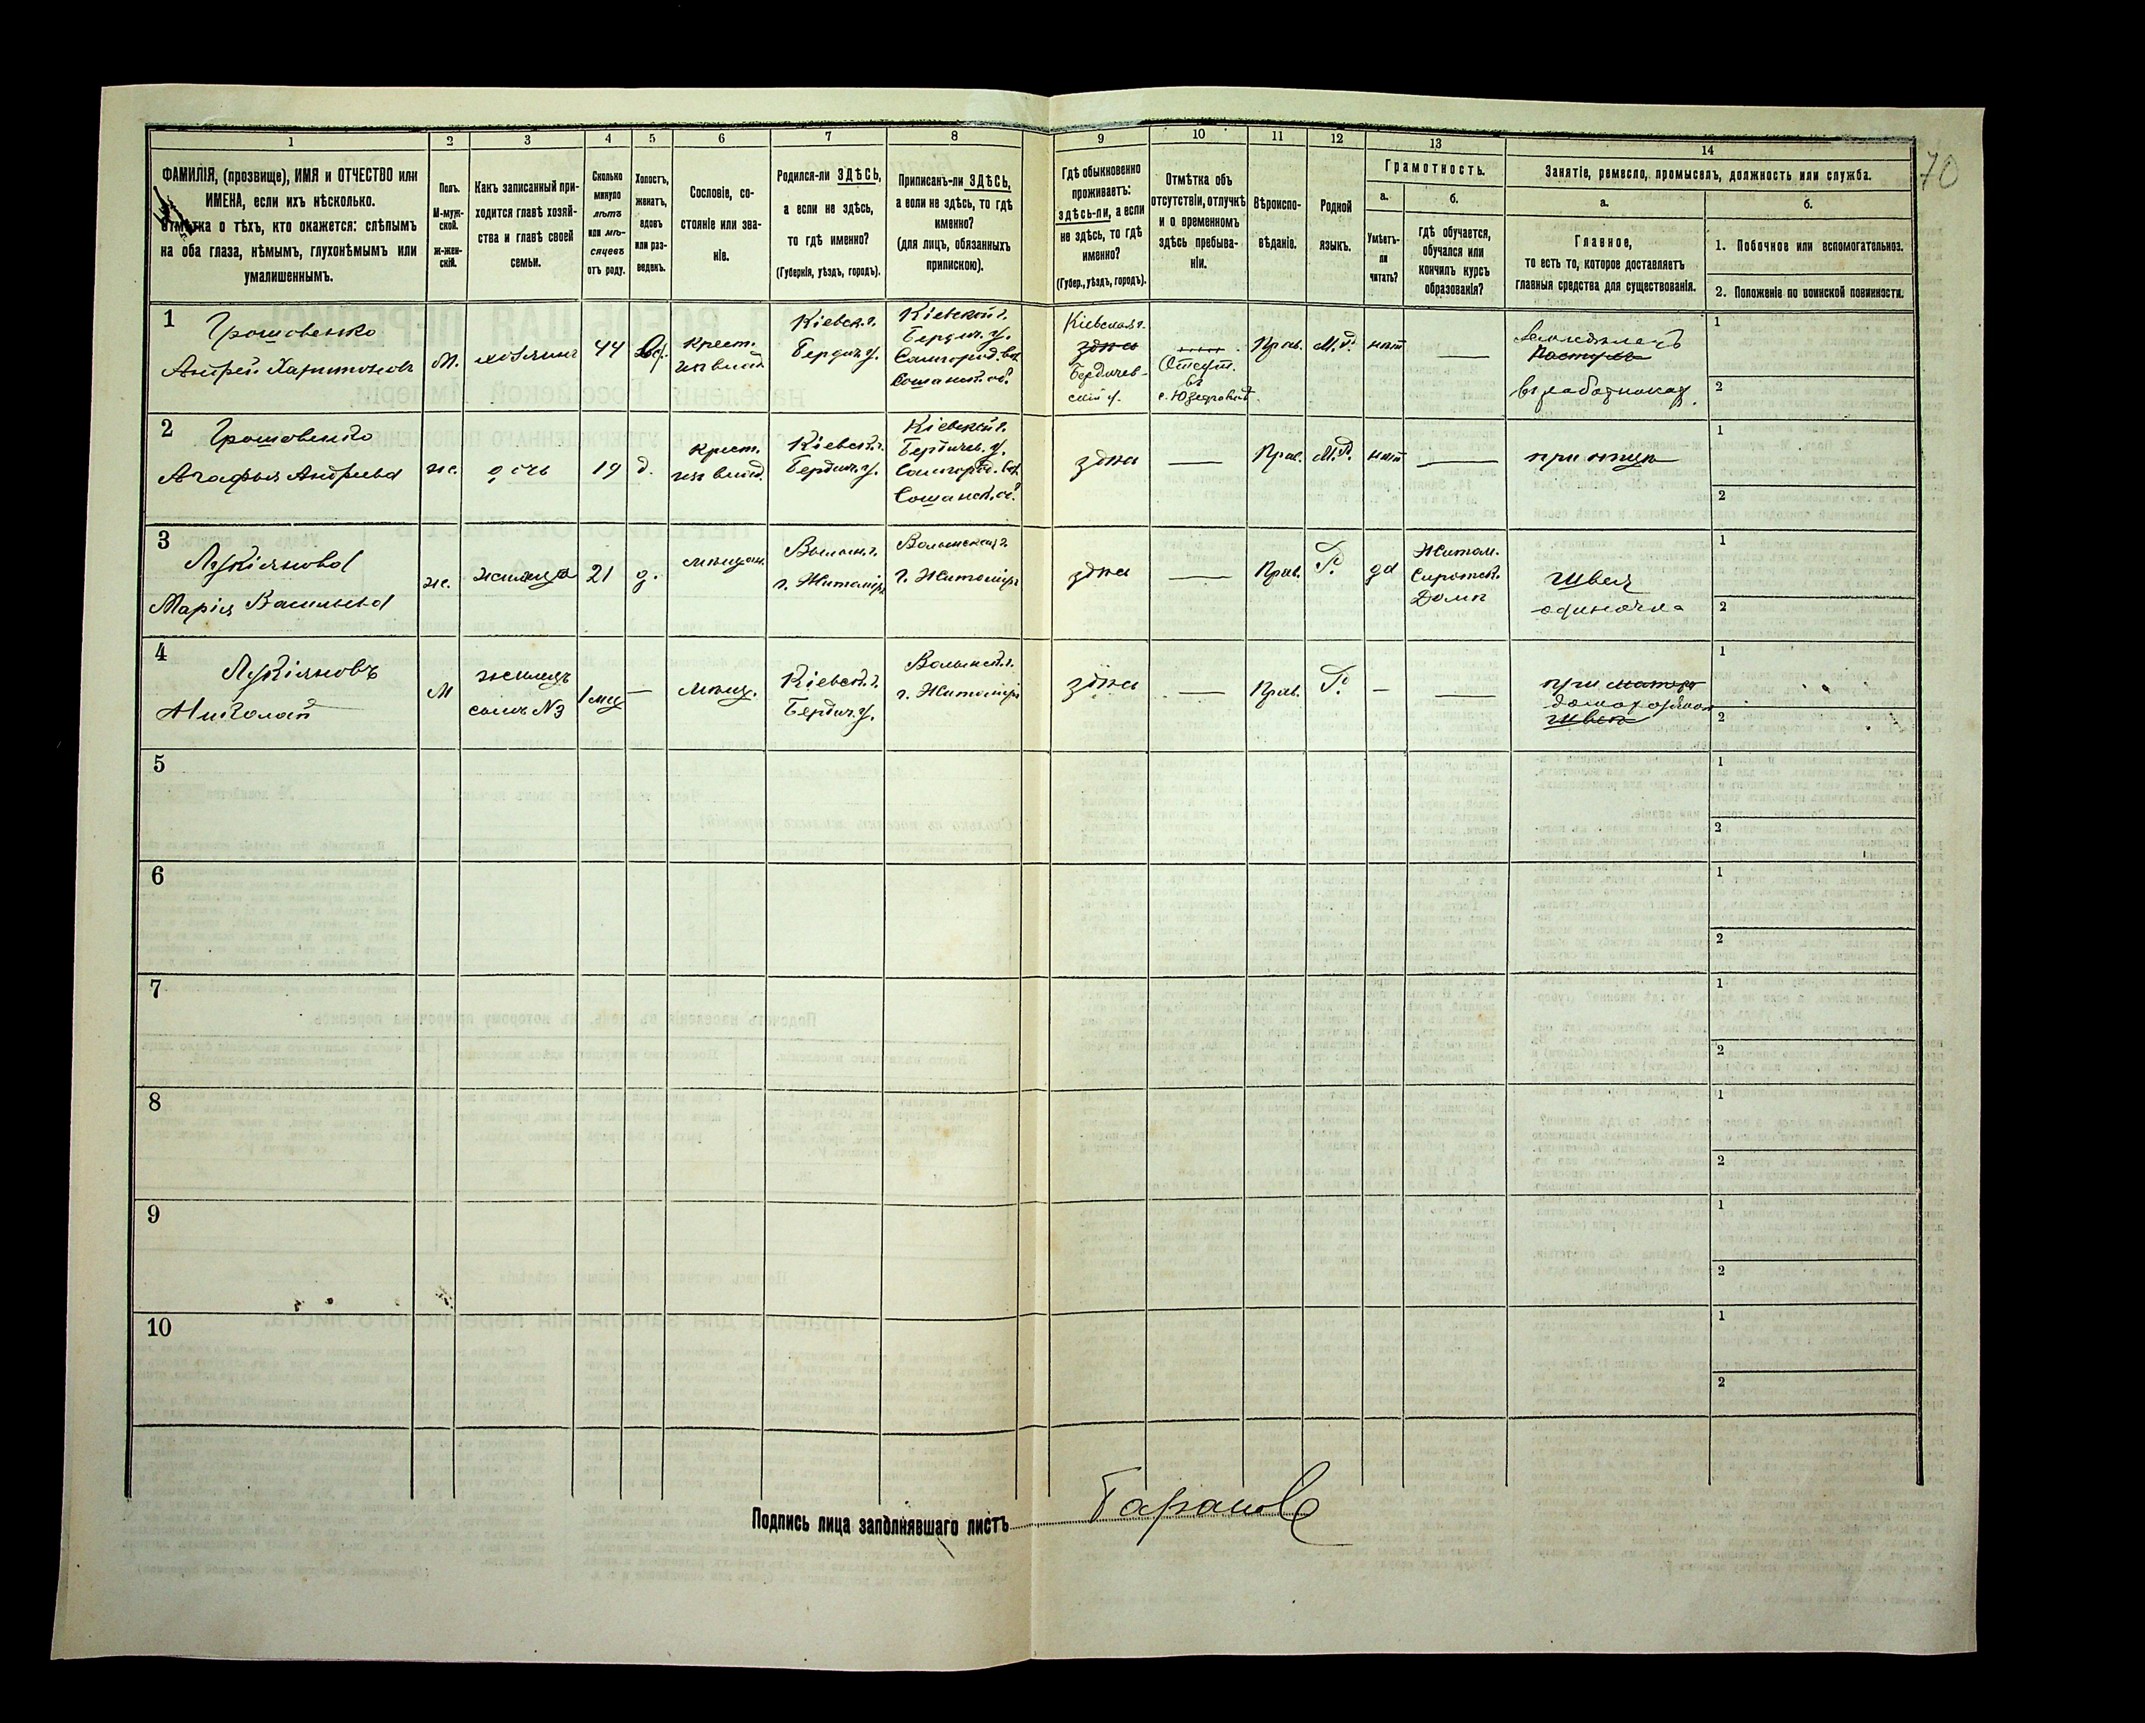 70
1 2 3 4 5 6 7 8 9 10 11 12 13 14
ФАМИЛІЯ, (прозвище), ИМЯ и ОТЧЕСТВО или
ИМЕНА, если ихъ нѣсколько.
Отмѣтка о тѣхъ, кто окажется: слѣпымъ
на оба глаза, нѣмымъ, глухонѣмымъ или
умалишеннымъ.
Полъ.
М-муж-
ской.
ж-жен-
скій.
Какъ записанный при-
ходится главѣ хозяй-
ства и главѣ своей
семьи.
Сколько
минуло
лѣтъ
или мѣ-
сяцевъ
отъ роду.
Холостъ,
женатъ,
вдовъ
или раз-
веденъ.
Сословіе, со-
стояніе или зва-
ніе.
Родился-ли ЗДѢСЬ,
а если не здѣсь,
то гдѣ именно?
(Губернія, уѣздъ, городъ).
Приписанъ-ли ЗДѢСЬ,
а если не здѣсь, то гдѣ
именно?
(для лицъ, обязанныхъ
припискою).
Гдѣ обыкновенно
проживаетъ:
здѣсь-ли, а если
не здѣсь, то гдѣ
именно?
(Губер., уѣздъ, городъ).
Отмѣтка объ
отсутствіи, отлучкѣ
и о временномъ
здѣсь пребыва-
ніи.
Вѣроиспо-
вѣданіе.
Родной
языкъ.
Грамотность.
а.
Умѣетъ-
ли
читать?
б.
гдѣ обучается,
обучался или
кончилъ курсъ
образованія?
Занятіе, ремесло, промыселъ, должность или служба.
а.
Главное,
то есть то, которое доставляетъ
главныя средства для существованія.
б.
1. Побочное или вспомогательное.
2. Положеніе по воинской повинности.
1
Грошовенко
Андрей Харитоновъ
М.
хозяинъ
44
вд.
крест.
изъ влад.
Кіевск. г.
Бердич. у.
Кіевской г.
Бердич. у.
Самгород. вол.
Сошанск. об.
Кіевская г.
здѣсь
Бердичев-
скій у.
Отсут.
въ
Прав.
М.Р.
нѣт
—
Пастухъ
въ работникахъ
1
2
2
Грошовенко
Агафья Андреева
ж.
дочь
19
д.
крест.
изъ влад.
Кіевск. г.
Бердич. у.
Кіевской г.
Бердичев. у.
Самгород. вол.
Сошанск. об.
здѣсь
—
Прав.
М.Р.
нѣт
—
при отцѣ
1
2
3
Лукіянова
Марія Васильева
ж.
жилица
21
д.
мѣщан.
Волын. г.
г. Житомiръ
Волынская г.
г. Житомiръ
здѣсь
—
Прав.
Р.
да
Житом.
Сиротск.
Домѣ
Швея
одиночка
1
2
4
Лукіяновъ
Николай
М
жилецъ
сынъ №3
1 мѣс
—
мѣщ.
Кіевск. г.
Бердич. у.
Волынск. г.
г. Житомiръ
здѣсь
—
Прав.
Р.
—
—
при матери
швеѣ
1
2
5
1
2
6
1
2
7
1
2
8
1
2
9
1
2
10
1
2
Подпись лица заполнявшаго листъ